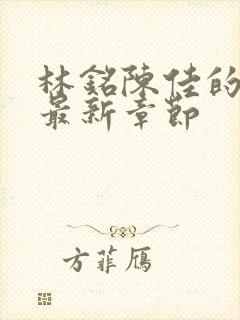 林銘陳佳的
最新章節
方菲雁